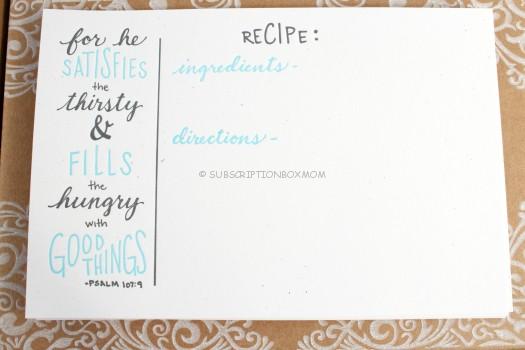 for he
SATISFIES
the
thirsty
&
FILLS
the
hungry
with
GOOD
THINGS
-PSALM 107:9
RECIPE:
ingredients -
directions -
© SUBSCRIPTIONBOXMOM